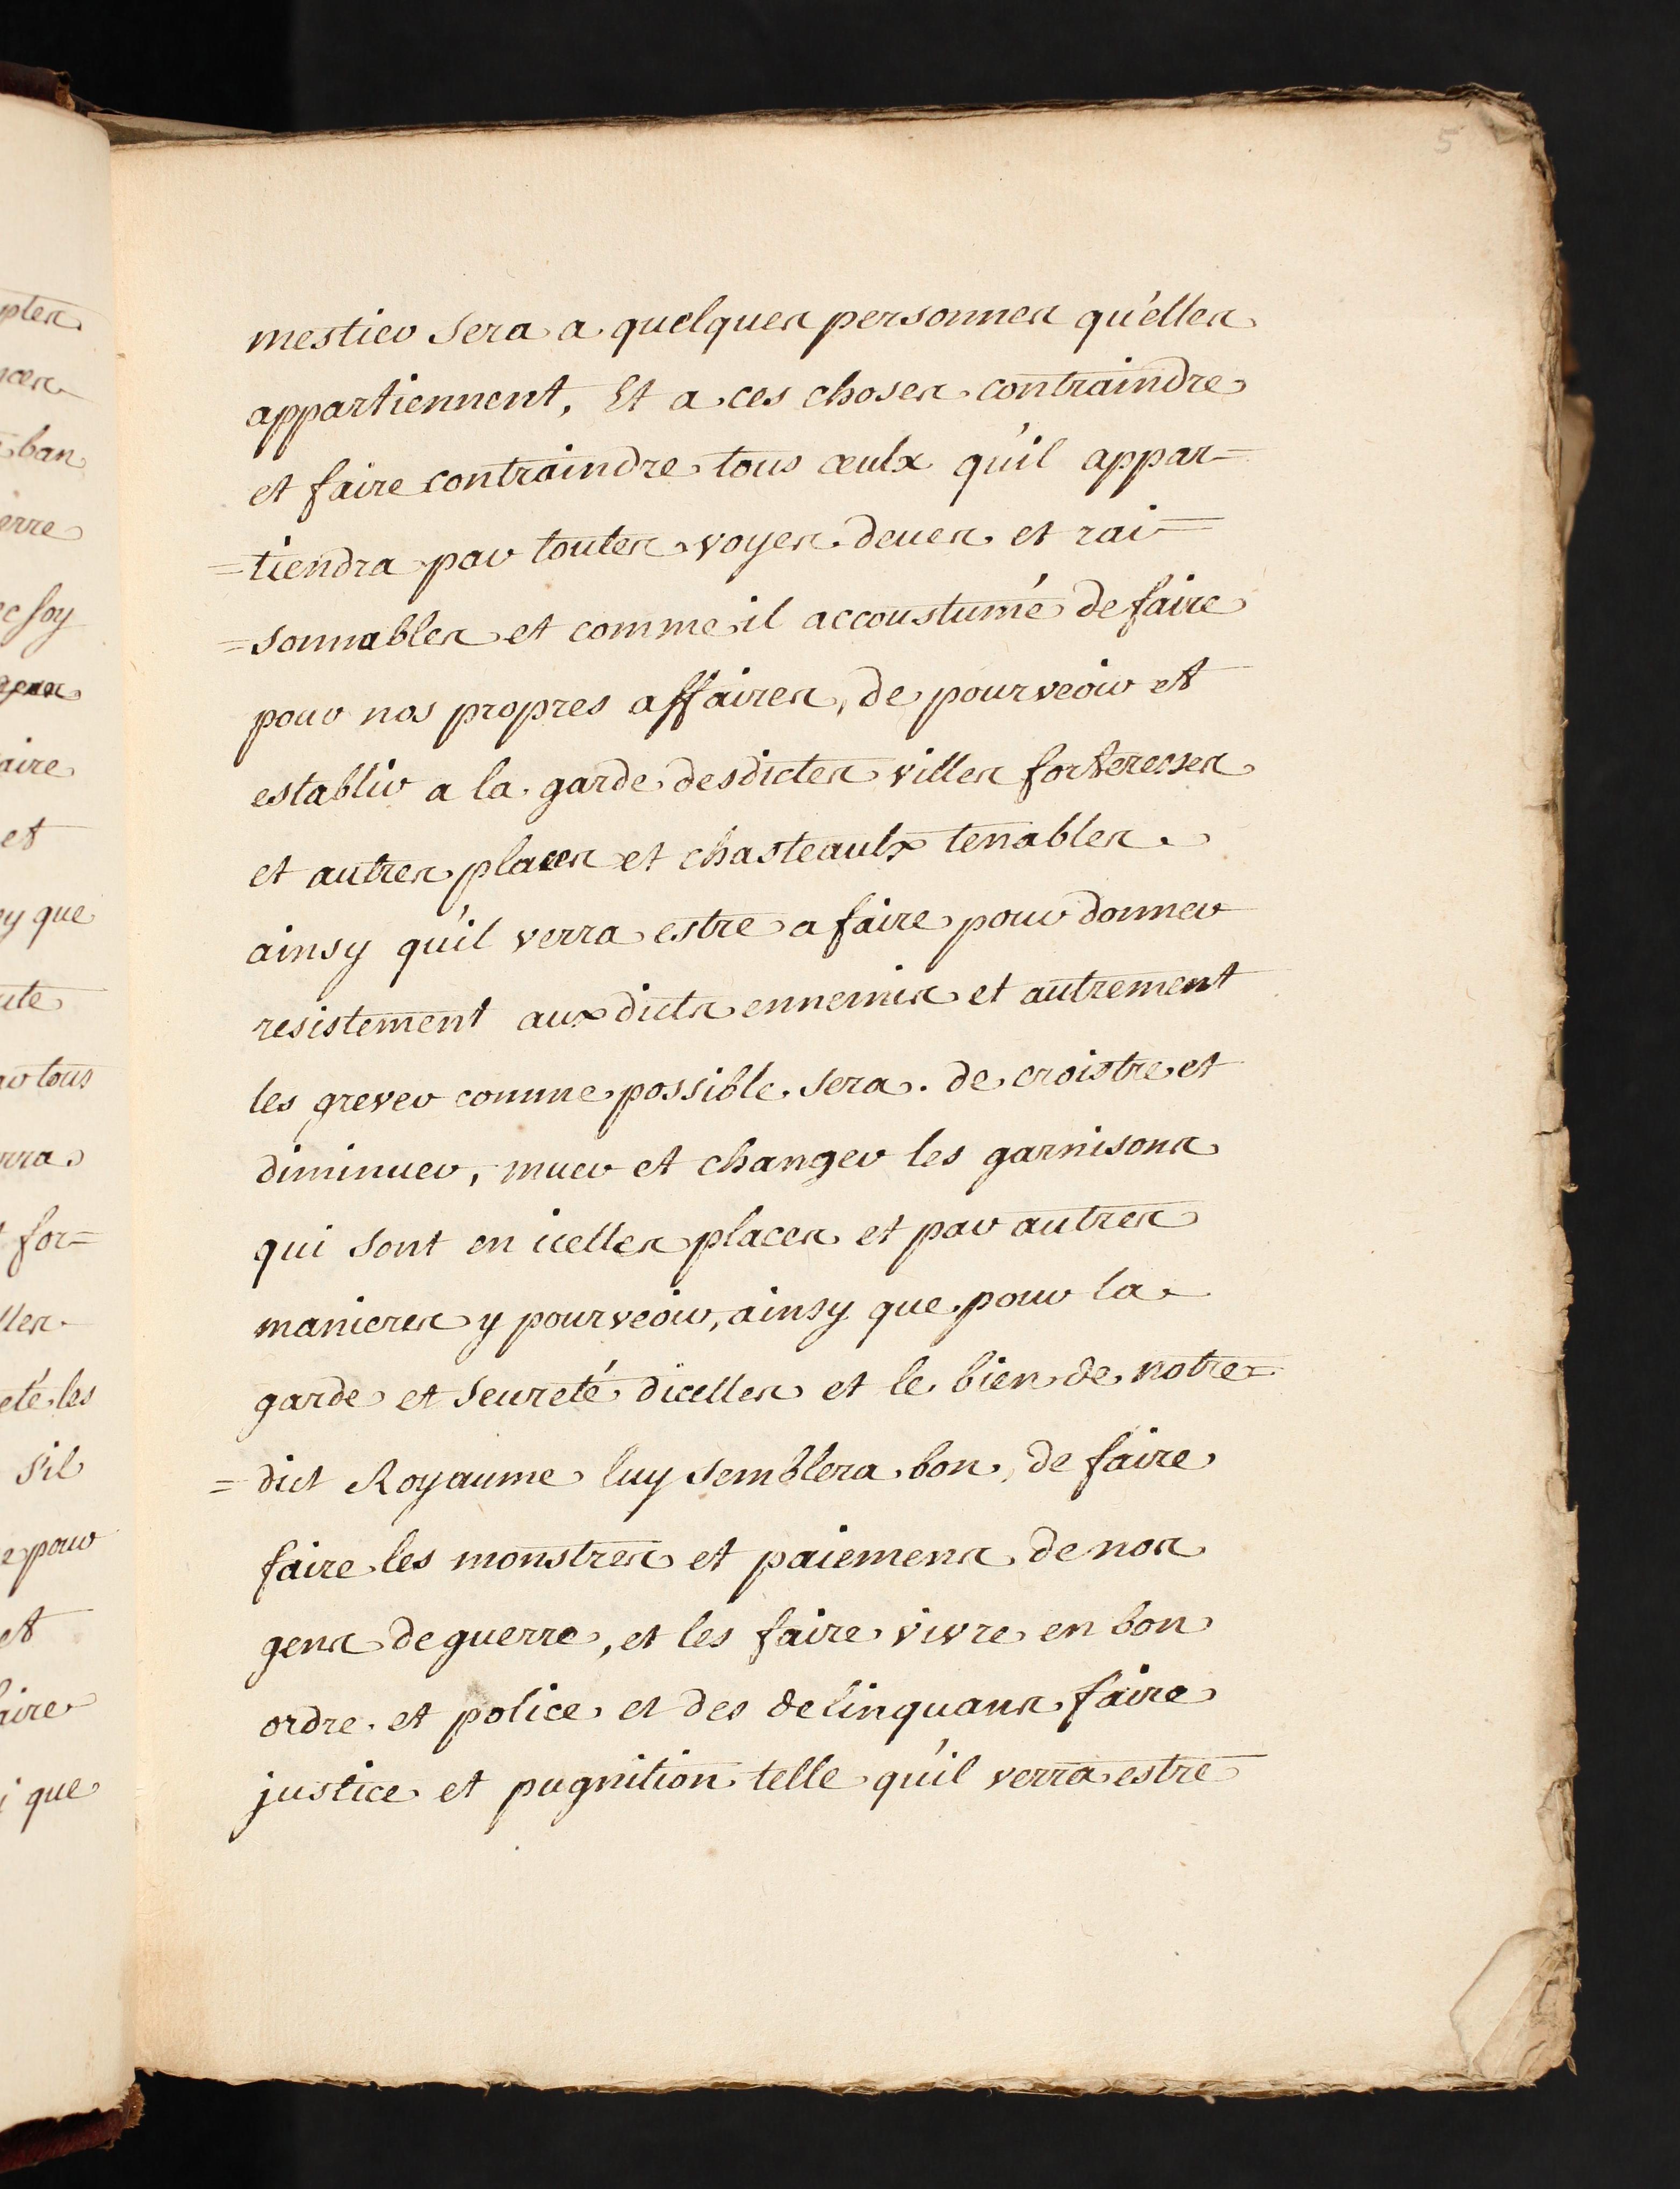 5
mestier sera a quelques personnes qu'elles
appartiennent, Et a ces choses contraindre
et faire contraindre tous ceulx qu'il appar=
=tiendra par toutes voyes deues et rai=
=sonnables et comme il accoustumé de faire
pour nos propres affaires, de pourveoir et
establir a la garde desdictes villes forteresses
et autres places et chasteaulx tenables.
ainsy qu'il verra estre a faire pour donner
resistement auxdicts ennemis et autrement
les grever comme possible sera. de croistre et
diminuer, muer et changer les garnisons
qui sont en icelles places et par autres
manieres y pourveoir, ainsy que pour la
garde et seureté dicelles et le bien de notre=
=dict Royaume luy semblera bon, de faire
faire les monstres et paiemens de nos
gens de guerre, et les faire vivre en bon
ordre et police et des delinquans faire
justice et pugnition telle qu'il verra estre